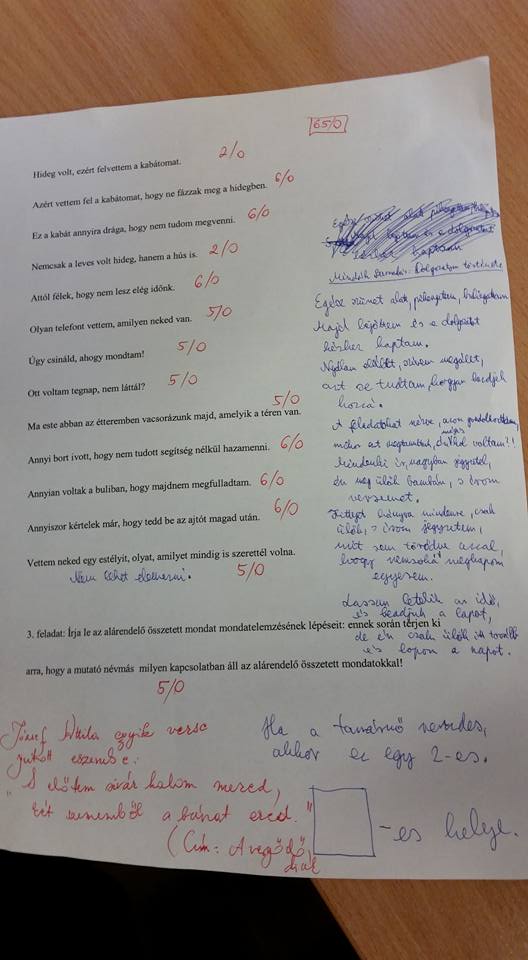 65/0
Hideg volt, ezért felvettem a kabátomat. 2/0
Azért vettem fel a kabátomat, hogy ne fázzak meg a hidegben. 6/0
Ez a kabát annyira drága, hogy nem tudom megvenni. 6/0
Nemcsak a leves volt hideg, hanem a hús is. 2/0
Attól félek, hogy nem lesz elég időnk. 6/0
Olyan telefont vettem, amilyen neked van. 5/0
Úgy csináld, ahogy mondtam! 5/0
Ott voltam tegnap, nem láttál? 5/0
Ma este abban az étteremben vacsorázunk majd, amelyik a téren van. 5/0
Annyi bort ivott, hogy nem tudott segítség nélkül hazamenni. 6/0
Annyian voltak a buliban, hogy majdnem megfulladtam. 6/0
Annyiszor kértelek már, hogy tedd be az ajtót magad után. 6/0
Vettem neked egy estélyit, olyat, amilyet mindig is szerettél volna. 5/0
Nem lehet elemezni.
3. feladat: Írja le az alárendelő összetett mondat mondatelemzésének lépéseit: ennek során térjen ki
arra, hogy a mutató névmás milyen kapcsolatban áll az alárendelő összetett mondatokkal!
5/0
Dolgozatom története
Egész szünet alatt, pihengettem,
Majd bejöttem és a dolgozatot
kézhez kaptam.
szívem megállt,
azt se tudtam, hogyan kezdjek
hozzá.
A feladatokat nézve, azon gondolkodtam,
mikor ezt megtanultuk, hol voltam?!
Mindenki ír, nagyban jegyzetel,
én meg ülök bambán, s írom
versemet.
mindenre, csak
ülök, s írom jegyzetem,
mit sem törődve azzal,
hogy megkapom
egyesem.
Lassan letelik az idő,
és beadjuk a lapot,
de én csak ülök itt tovább
és lopom a napot.
József Attila egyik verse
jutott eszembe:
"S előttem sivár halom mered,
két szememből a bánat ered."
(Cím: A végződő,
diák
Ha a tanárnő rendes,
akkor ez egy 2-es.
-es helye.